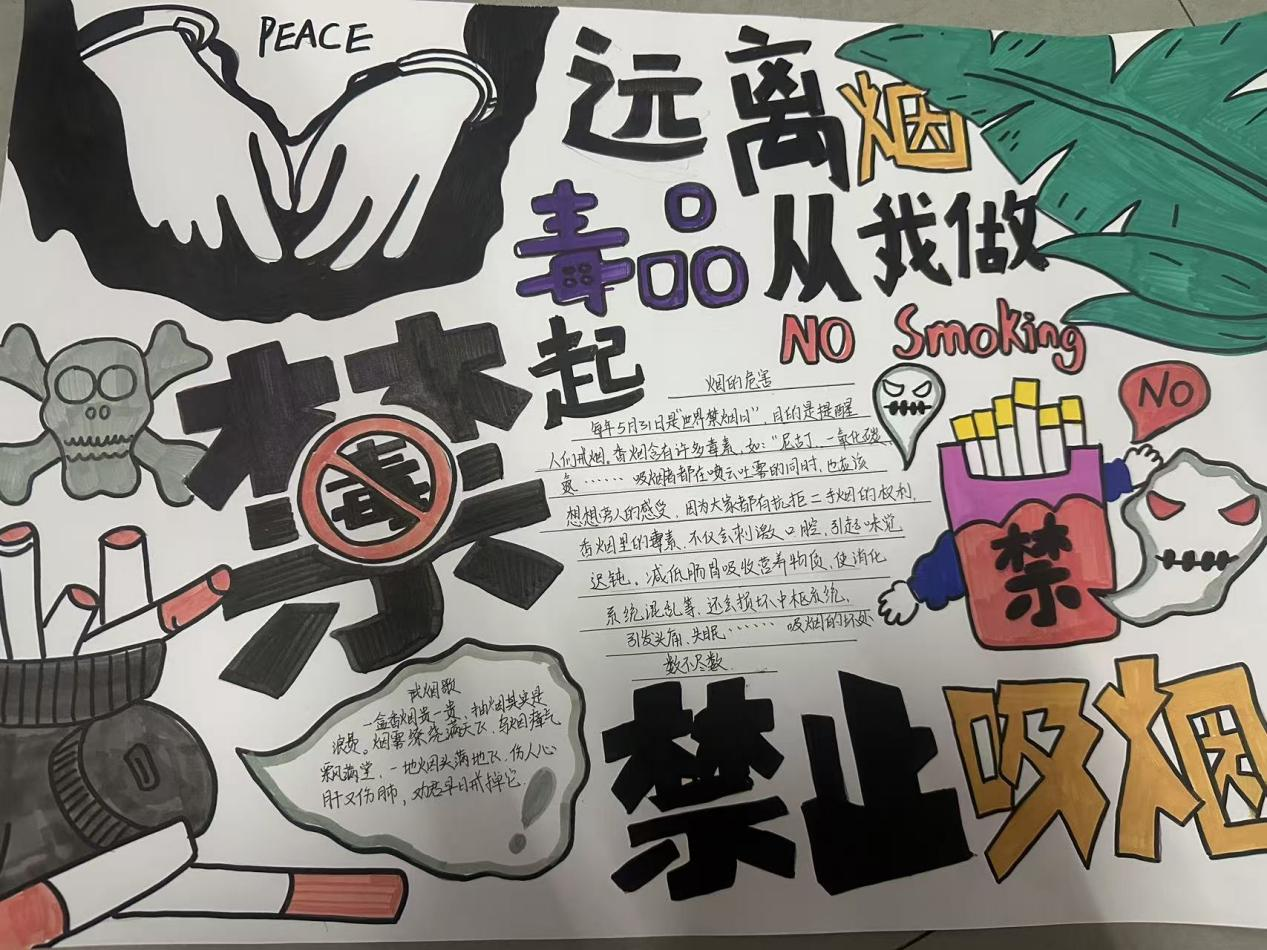 PEACE
远离烟
毒品从我做
起
NO Smoking
禁
毒
烟的危害
每年5月31日是"世界禁烟日",目的是提醒
人们戒烟。香烟含有许多毒素,如:"尼古丁、一氧化碳、
氨…… 吸烟者都在喷云吐雾的同时,也应该
想想旁人的感受,因为大家都有抗拒二手烟的权利,
香烟里的毒素,不仅会刺激口腔,引起味觉
迟钝,减低肠胃吸收营养物质,使消化
系统混乱等,还会损坏中枢系统,
引发头痛、失眠…… 吸烟的坏处
数不尽数.
NO
禁
戒烟歌
一盒香烟贵一贵,抽烟其实是
浪费。烟雾缭绕满天飞,乌烟瘴气
飘满堂,一地烟头满地飞,伤人心
肝又伤肺,劝君早日戒掉它.
禁止吸烟